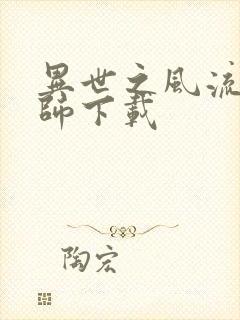 異世之風流
師下載
陶宏